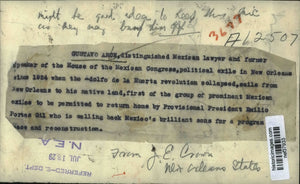 might be good idea to keep this
as they may
3677
A62507
GUSTAVO ARCE, distinguished Mexican lawyer and former
speaker of the House of the Mexican Congress, political exile in New Orleans
since 1924 when the Adolfo de la Huerta revolution collapsed, exile from
New Orleans to his native land, first of the group of prominent Mexican
exiles to be permitted to return home by Provisional President Emilio
Portes Gil who is calling back Mexico's brilliant sons for a program
and reconstruction.
REFERRED-E. DEPT
N.E.A.
From J. E. Crown
New Orleans States